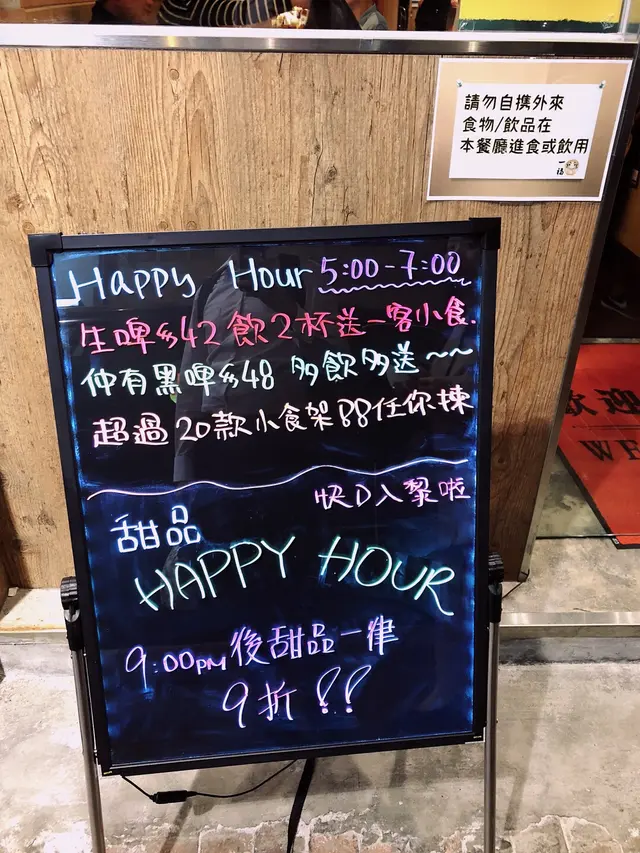 請勿自携外來
食物/飲品在
本餐廳進食或飲用
一福
Happy Hour 5:00-7:00
生啤$42 飲2杯送一客小食.
仲有黑啤$48 多飲多送~~
超過20款小食架88任你揀
快D入黎啦
甜品
HAPPY HOUR
9:00PM後甜品一律
9折!!
歡迎
WE